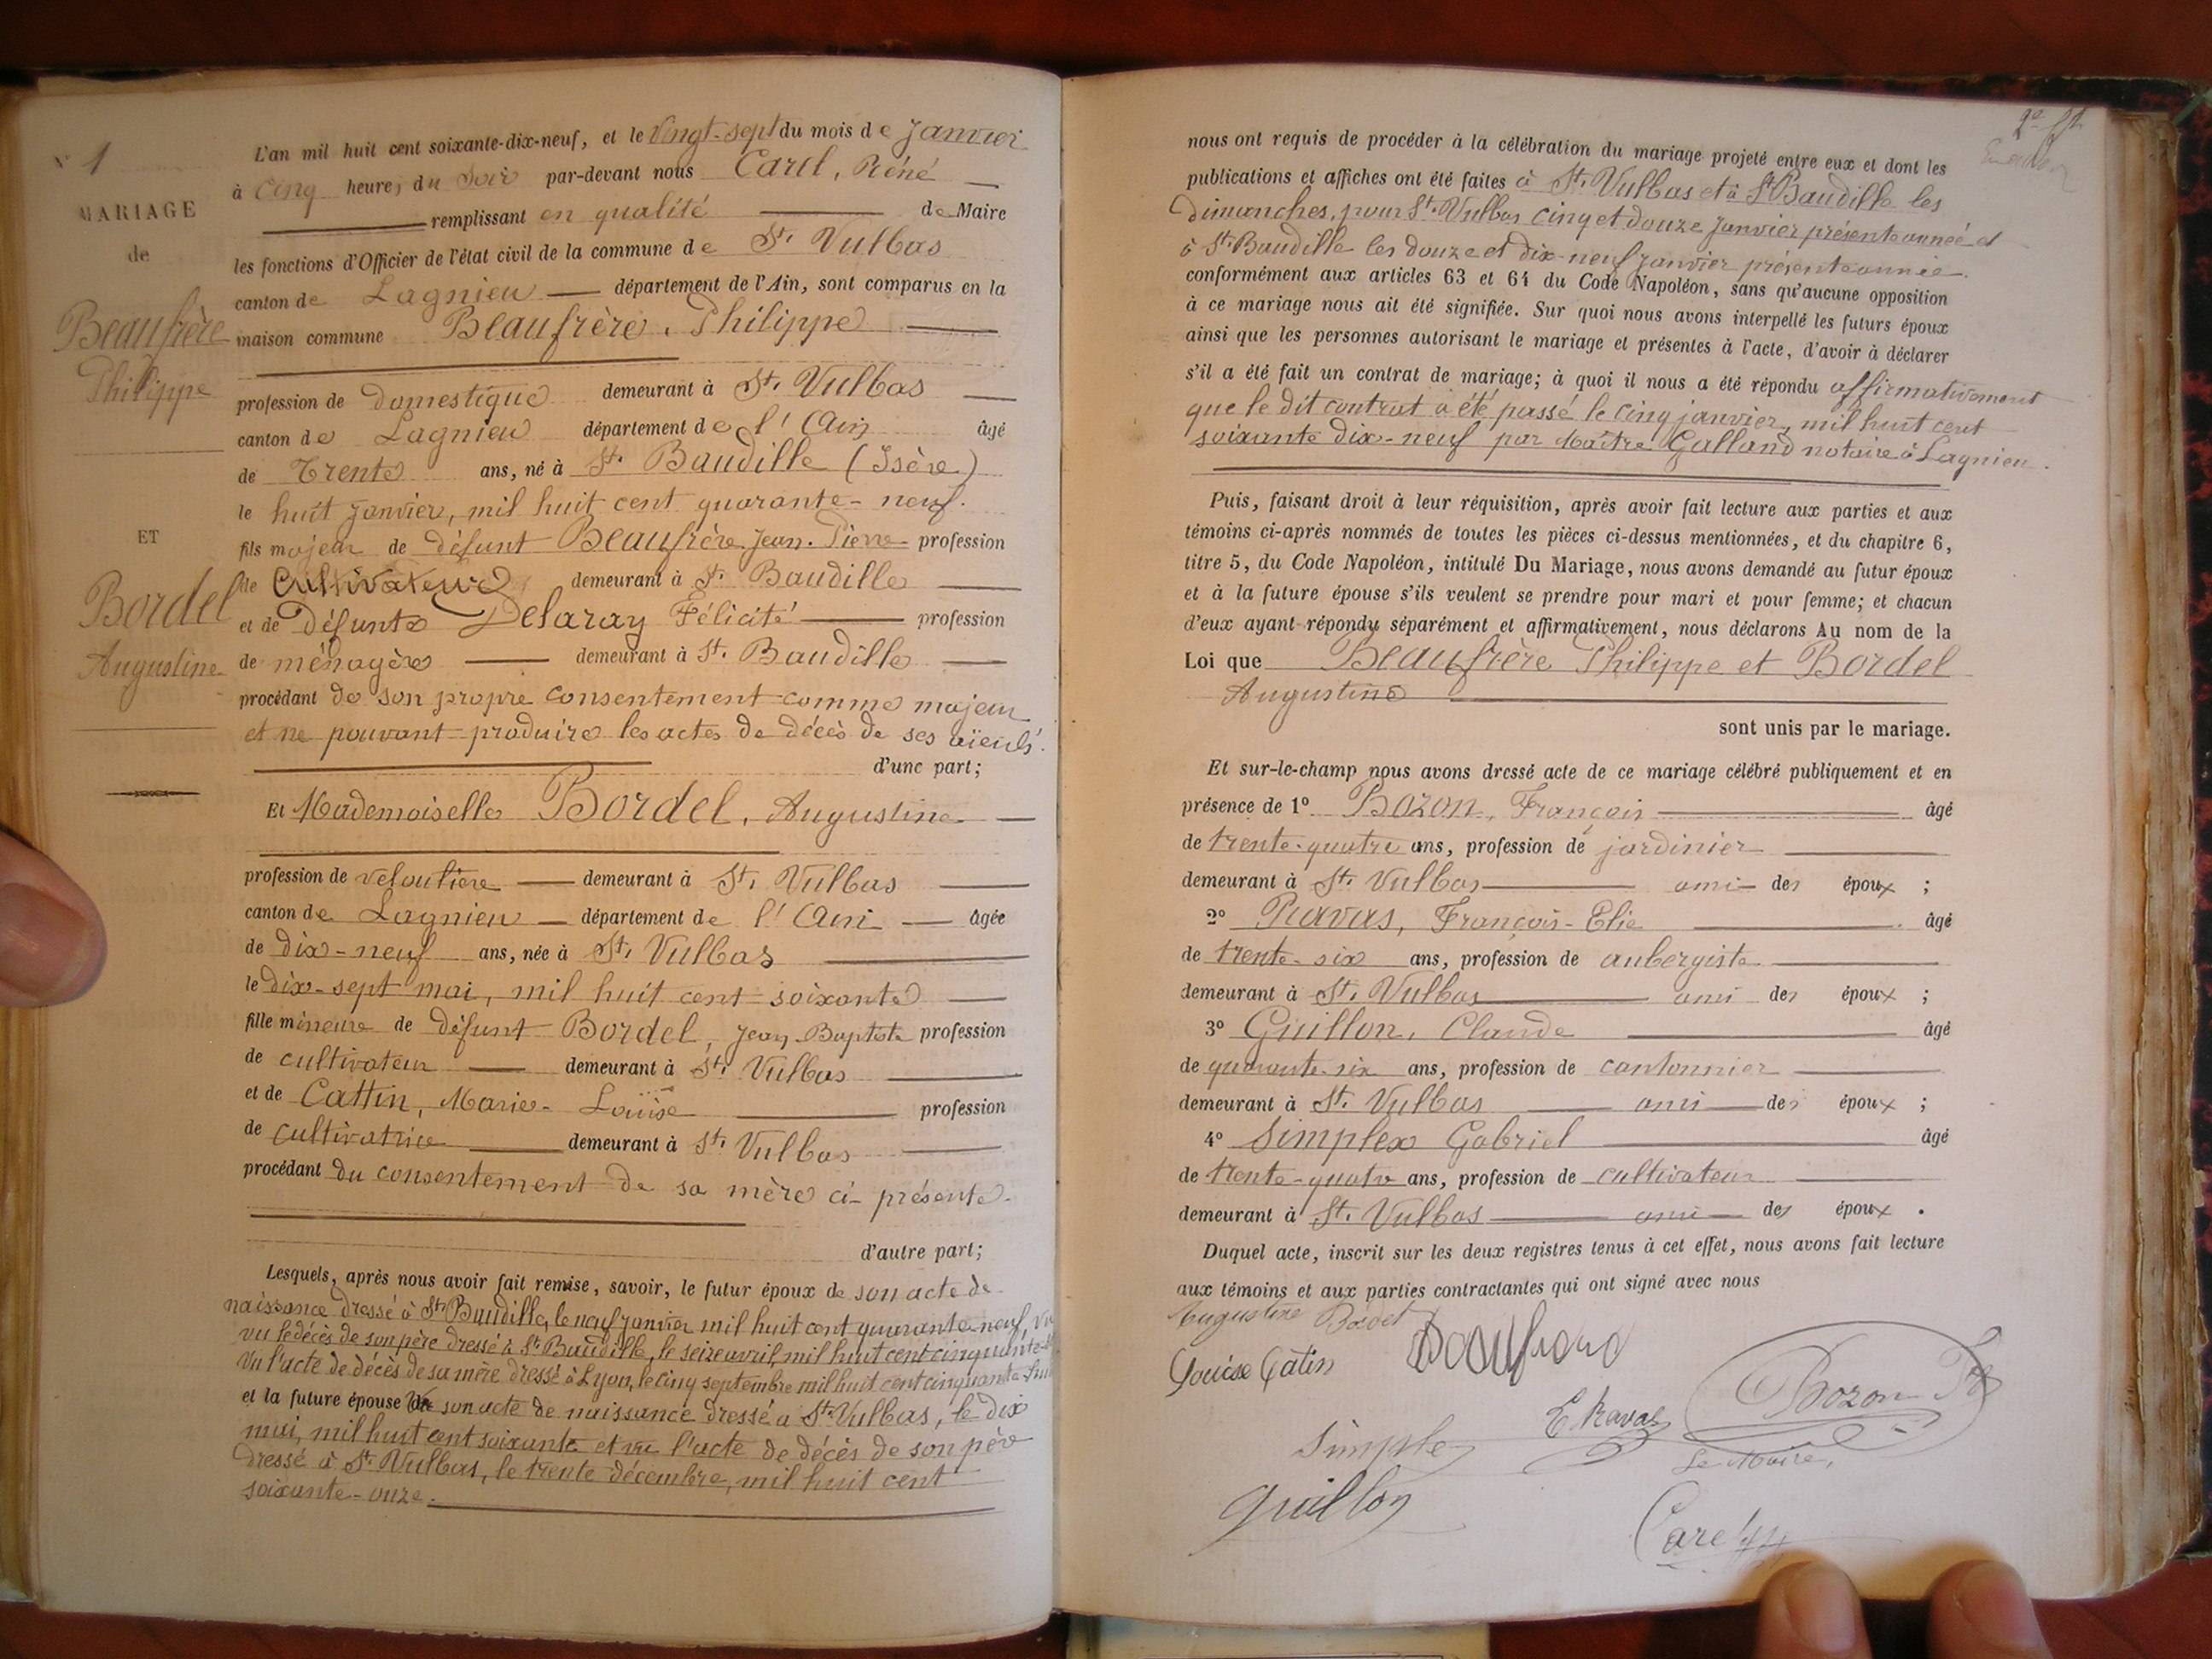 N° 1
MARIAGE
de
Beaufrère
Philippe
ET
Bordel
Augustine
L'an mil huit cent soixante-dix-neuf, et le Vingt-sept du mois de Janvier
à Cinq heures du Soir par-devant nous Carel, Réné
remplissant en qualité de Maire
les fonctions d'Officier de l'état civil de la commune de St. Vulbas
canton de Lagnieu département de l'Ain, sont comparus en la
maison commune Beaufrère, Philippe
profession de domestique demeurant à St. Vulbas
canton de Lagnieu département de l'Ain âgé
de Trente ans, né à St. Baudille (Isère)
le huit Janvier, mil huit cent quarante-neuf.
fils majeur de défunt Beaufrère Jean-Pierre profession
de Cultivateur demeurant à St. Baudille
et de Défunte Delaray Félicité profession
de ménagère demeurant à St. Baudille
procédant de son propre consentement comme majeur
et ne pouvant produire les actes de décès de ses aïeuls.
d'une part;
Et Mademoiselle Bordel, Augustine
profession de veloutière demeurant à St. Vulbas
canton de Lagnieu département de l'Ain âgée
de dix-neuf ans, née à St. Vulbas
le dix-sept mai, mil huit cent soixante
fille mineure de défunt Bordel, Jean-Baptiste profession
de cultivateur demeurant à St. Vulbas
et de Cattin, Marie-Louïse profession
de cultivatrice demeurant à St. Vulbas
procédant du consentement de sa mère ci-présente.
d'autre part;
Lesquels, après nous avoir fait remise, savoir, le futur époux de son acte de
naissance dressé à St. Baudille, le neuf janvier mil huit cent quarante-neuf,
vu le décès de son père dressé à St. Baudille, le seize avril, mil huit cent cinquante
Vu l'acte de décès de sa mère dressé à Lyon, le cinq septembre mil huit cent cinquante
et la future épouse de son acte de naissance dressé à St. Vulbas, le dix
mai, mil huit cent soixante et vu l'acte de décès de son père
dressé à St. Vulbas, le trente décembre, mil huit cent
soixante-onze.
nous ont requis de procéder à la célébration du mariage projeté entre eux et dont les
publications et affiches ont été faites à St. Vulbas et à St Baudille les
dimanches, pour St. Vulbas cinq et douze Janvier présente année et
à St. Baudille les douze et dix-neuf janvier présente année.
conformément aux articles 63 et 64 du Code Napoléon, sans qu'aucune opposition
à ce mariage nous ait été signifiée. Sur quoi nous avons interpellé les futurs époux
ainsi que les personnes autorisant le mariage et présentes à l'acte, d'avoir à déclarer
s'il a été fait un contrat de mariage; à quoi il nous a été répondu affirmativement
que le dit contrat a été passé le cinq janvier, mil huit cent
soixante dix-neuf par Maître Galland notaire à Lagnieu.
Puis, faisant droit à leur réquisition, après avoir fait lecture aux parties et aux
témoins ci-après nommés de toutes les pièces ci-dessus mentionnées, et du chapitre 6,
titre 5, du Code Napoléon, intitulé Du Mariage, nous avons demandé au futur époux
et à la future épouse s'ils veulent se prendre pour mari et pour femme; et chacun
d'eux ayant répondu séparément et affirmativement, nous déclarons Au nom de la
Loi que Beaufrère Philippe et Bordel
Augustine
sont unis par le mariage.
Et sur-le-champ nous avons dressé acte de ce mariage célébré publiquement et en
présence de 1° Bozon, François âgé
de trente-quatre ans, profession de jardinier
demeurant à St. Vulbas ami des époux ;
2° Ravas, François-Elie âgé
de trente-six ans, profession de aubergiste
demeurant à St. Vulbas ami des époux ;
3° Guillon, Claude âgé
de quarante-six ans, profession de cantonnier
demeurant à St. Vulbas ami des époux ;
4° Simplex Gabriel âgé
de trente-quatre ans, profession de cultivateur
demeurant à St. Vulbas ami des époux .
Duquel acte, inscrit sur les deux registres tenus à cet effet, nous avons fait lecture
aux témoins et aux parties contractantes qui ont signé avec nous
Augustine Bordel
Louise Catin
E Ravas
Bozon
Simplex
Le Maire,
Guillon
Carel